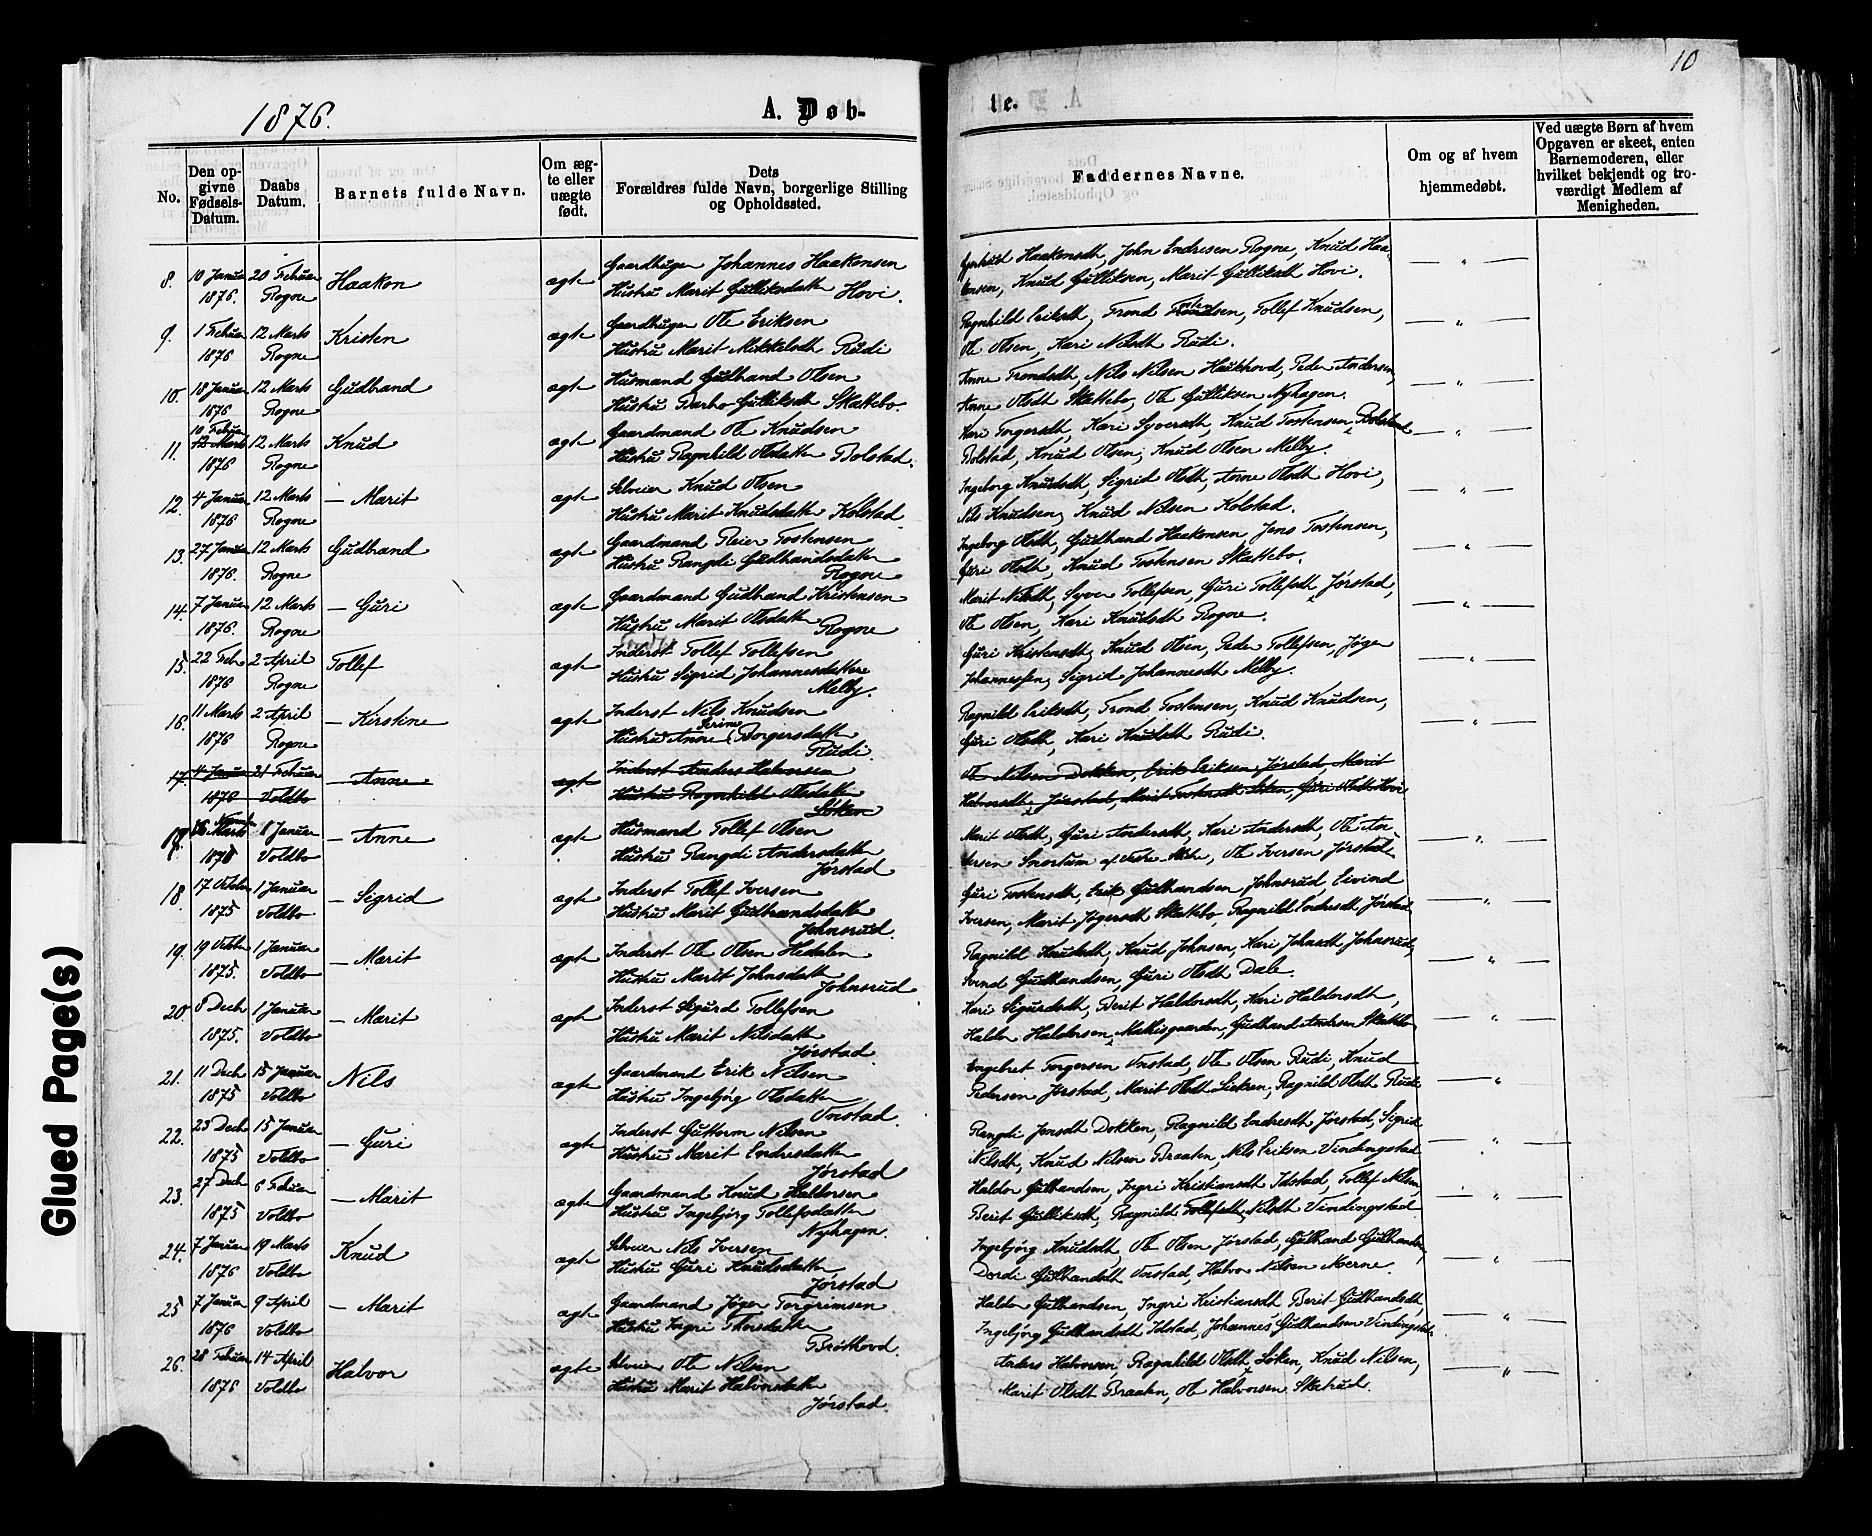 1876.
A. Døb-
te.
10
No.
Den op-
givne
Fødsels-
Datum.
Daabs
Datum.
Barnets fulde Navn.
Om æg-
te eller
uægte
født.
Dets
Forældres fulde Navn, borgerlige Stilling
og Opholdssted.
Faddernes Navne.
Om og af hvem
hjemmedøbt.
Ved uægte Børn af hvem
Opgaven er skeet, enten
Barnemoderen, eller
hvilket bekjendt og tro-
værdigt Medlem af
Menigheden.
8. 10 Januar 20 Februar Haakon ægte Johannes Haakensen Haakensdt, John Endresen Rogne, Knud Haa-
1876. Rogne Hustru Marit Gulliksdatter Hovi. kensen, Knud Gulliksen, Marit Gulliksdt Hovi.
9. 1 Februar 12 Marts Kristen ægte Ole Eriksen Ragnhild Eriksdt, Trond Tollef Knudsen,
1876 Rogne Hustru Marit Mikkelsdt Rudi Ole Olsen, Kari Nilsdt Rudi.
10. 18 Januar 12 Marts Gudbrand ægte Husmand Gudbrand Olsen Anne Trondsdt, Nils Nilsen Haukhovd, Peder Andersen,
1876 Rogne Hustru Barbo Gulliksdt Skattebo. Anne Olsdt Skattebo, Ole Gulliksen Nyhagen.
10 Februar
11. 12 Marts 12 Marts Knud ægte Gaardmand Ole Knudsen Kari Torgersdt, Kari Syversdt, Knud Tostensen Bolstad
1876 Rogne Hustru Ragnhild Olsdatter Bolstad. Bolstad, Knud Olsen, Knud Olsen Melby.
12. 4 Januar 12 Marts — Marit ægte Selveier Knud Olsen Ingeborg Knudsdt, Sigrid Olsdt, Anne Olsdt Hovi,
1876 Rogne Hustru Marit Knudsdatter Kolstad. Nils Knudsen, Knud Nilsen Kolstad.
13. 27 Januar 12 Marts Gudbrand ægte Gaardmand Reier Tostensen Ingeborg Olsdt, Gudbrand Haakensen, Jens Tostensen,
1876. Rogne Hustru Rangdi Gudbrandsdatter Guri Olsdt, Knud Tostensen Skattebo.
Rogne
14. 7 Januar 12 Marts — Guri ægte Gaardmand Gudbrand Kristensen Marit Nilsdt, Syver Tollefsen, Guri Tollefsdt Jørstad,
1876. Rogne Hustru Marit Olsdatter Rogne Ole Olsen, Kari Knudsdt Rogne.
15. 22 Feb 2 April Tollef ægte Inderst Tollef Tollefsen Guri Kristensdt, Knud Olsen, Peder Tollefsen, Jøger
1876 Rogne Hustru Sigrid Johannesdatter Johannessen, Sigrid Johannesdt Melby.
Melby.
16. 11 Marts 2 April — Kirstine ægte Inderst Nils Knudsen Ragnild Eriksdt, Trond Tostensen, Knud Knudsen,
1876 Rogne Hustru Anne Torgersdatter Guri Olsdt, Kari Knudsdt Rudi.
Rudi.
17. 4 Januar 21 Februar — Anne ægte Inderst Anders Halvorsen Ole Nilsen Dokken, Erik Eriksen Jørstad, Marit
1876 Voldbo Hustru Ragnhild Olsdatter Halvorsdt Jørstad, Marit Tostensdt Løken, Guri Olsdt Hovi
Løken
17. 1 Januar — Anne ægte Husmand Tollef Olsen Marit Olsdt, Guri Andersdt, Kari Andersdt, Ole An-
Voldbo Hustru Rangdi Andersdatter dersen Snortum af Vestre Slidre, Ole Iversen Jørstad.
Jørstad
18 17 Oktober 1 Januar — Sigrid ægte Inderst Tollef Iversen Guri Tostensdt, Erik Gudbrandsen, Johnsrud, Eivind
1875 Voldbo Hustru Marit Gudbrandsdatter Iversen, Marit Jøgersdt Skattebo, Ragnild Endresdt Jørstad
Johnsrud.
19. 19 1 Januar — Marit ægte Inderst Ole Olsen Hedalen Ragnild Knudsdt, Knud Johnsen, Kari Johnsdt Johnsrud,
1875. Voldbo Hustru Marit Johnsdatter Svend Gudbrandsen, Guri Olsdt Dale.
Johnsrud
20 8 Decb 1 Januar — Marit ægte Inderst Sigurd Tollefsen Kari Sigurdsdt, Berit Haldorsdt, Kari Haldorsdt,
1875. Voldbo Hustru Marit Nilsdatter Haldor Haldorsen, Mathisgaarden, Gudbrand Andersen Skattebo
Jørstad
21. 11 Decb 15 Januar Nils ægte Gaardmand Erik Nilsen Engebret Torgersen Onstad, Ole Olsen Rudi, Knud
1875 Voldbo Hustru Ingebjørg Olsdatter Pedersen Jørstad, Marit Olsdt Løkken, Ragnild Olsdt Rudi.
Onstad.
22. 23 Decb 15 Januar — Guri ægte Inderst Guttorm Nilsen Rangdi Jensdt Dokken, Ragnild Endresdt Jørstad, Sigrid
1875 Voldbo Hustru Marit Endresdatter Nilsdt, Knud Nilsen Braaten, Nils Eriksen Vindingstad
Jørstad
23. 27 Decb 6 Februar — Marit ægte Gaardmand Knud Haldorsen Haldor Gulbrandsen, Ingri Kristiansdt Idstad, Tollef Nilsen,
1875 Voldbo Hustru Ingebjørg Tollefsdatter Berit Gulliksdt, Ragnild Tollefsdt Nilsdt Vindingstad
Nyhagen.
24. 7 Januar 19 Marts Knud ægte Selveier Nils Iversen Ingebjørg Knudsdt, Ole Olsen Jørstad, Gulbrand Gulbrandsen,
1876 Voldbo Hustru Guri Knudsdatter Dordi Gulbrandsdt Onstad, Halvor Nilsen Moerne.
Jørstad
25 7 Januar 9 April — Marit ægte Gaardmand Jøger Torgrimsen Haldor Gulbrandsen, Ingri Kristiansdt, Berit Gulbrandsdt,
1876 Voldbo Hustru Ingri Thorsdatter Ingebjørg Gulbrandsdt Idstad, Johannes Gudbrandsen Vindingstad.
Brøthovd.
26. 28 Februar 14 April Halvor ægte Selveier Ole Nilsen Anders Halvorsen, Ragnhild Olsdt Løken, Knud Nilsen,
1876 Voldbo Hustru Marit Halvorsdatter Marit Olsdt Braaten, Ole Halvorsen Skatrud.
Jørstad.
Glued Page(s)